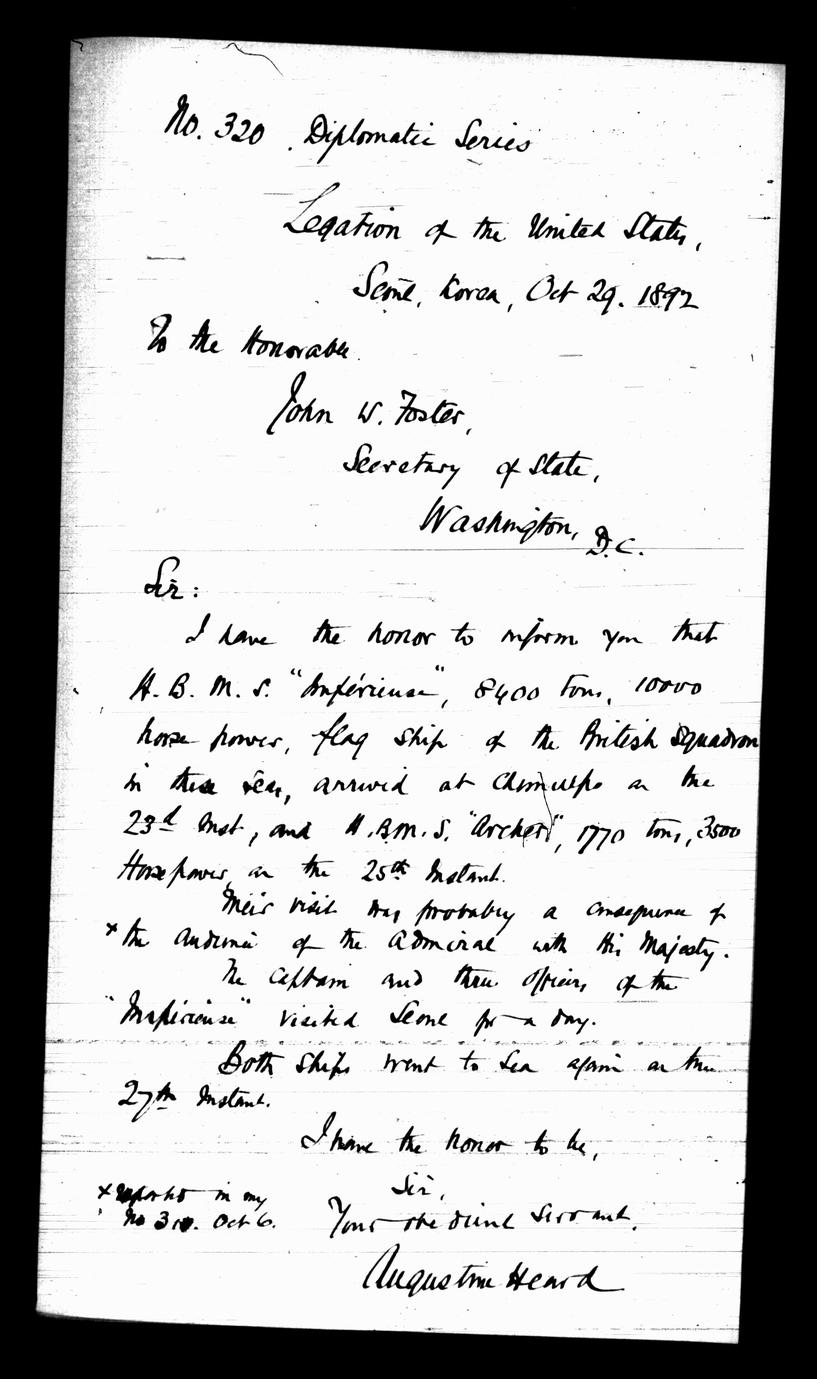 No. 320 Diplomatic Series
Legation of the United States,
Seoul, Korea, Oct 29. 1892
To the Honorable
John W. Foster,
Secretary of State,
Washington, D.C.
Sir:
I have the honor to inform you that
H. B. M. S. "Impérieuse", 8400 tons, 10000
horse power, flag ship of the British Squadron
in these seas, arrived at Chemulpo on the
23d inst, and H.B.M.S. "Archer", 1770 tons, 3500
Horsepower, on the 25th Instant.
Their visit was probably a consequence of
x the audience of the Admiral with His Majesty.
The Captain and three officers of the
"Impérieuse" visited Seoul for a day.
Both ships went to sea again on the
27th Instant.
I have the honor to be,
Sir,
Your obedient Servant,
Augustine Heard
x reported in my
No Oct 6.